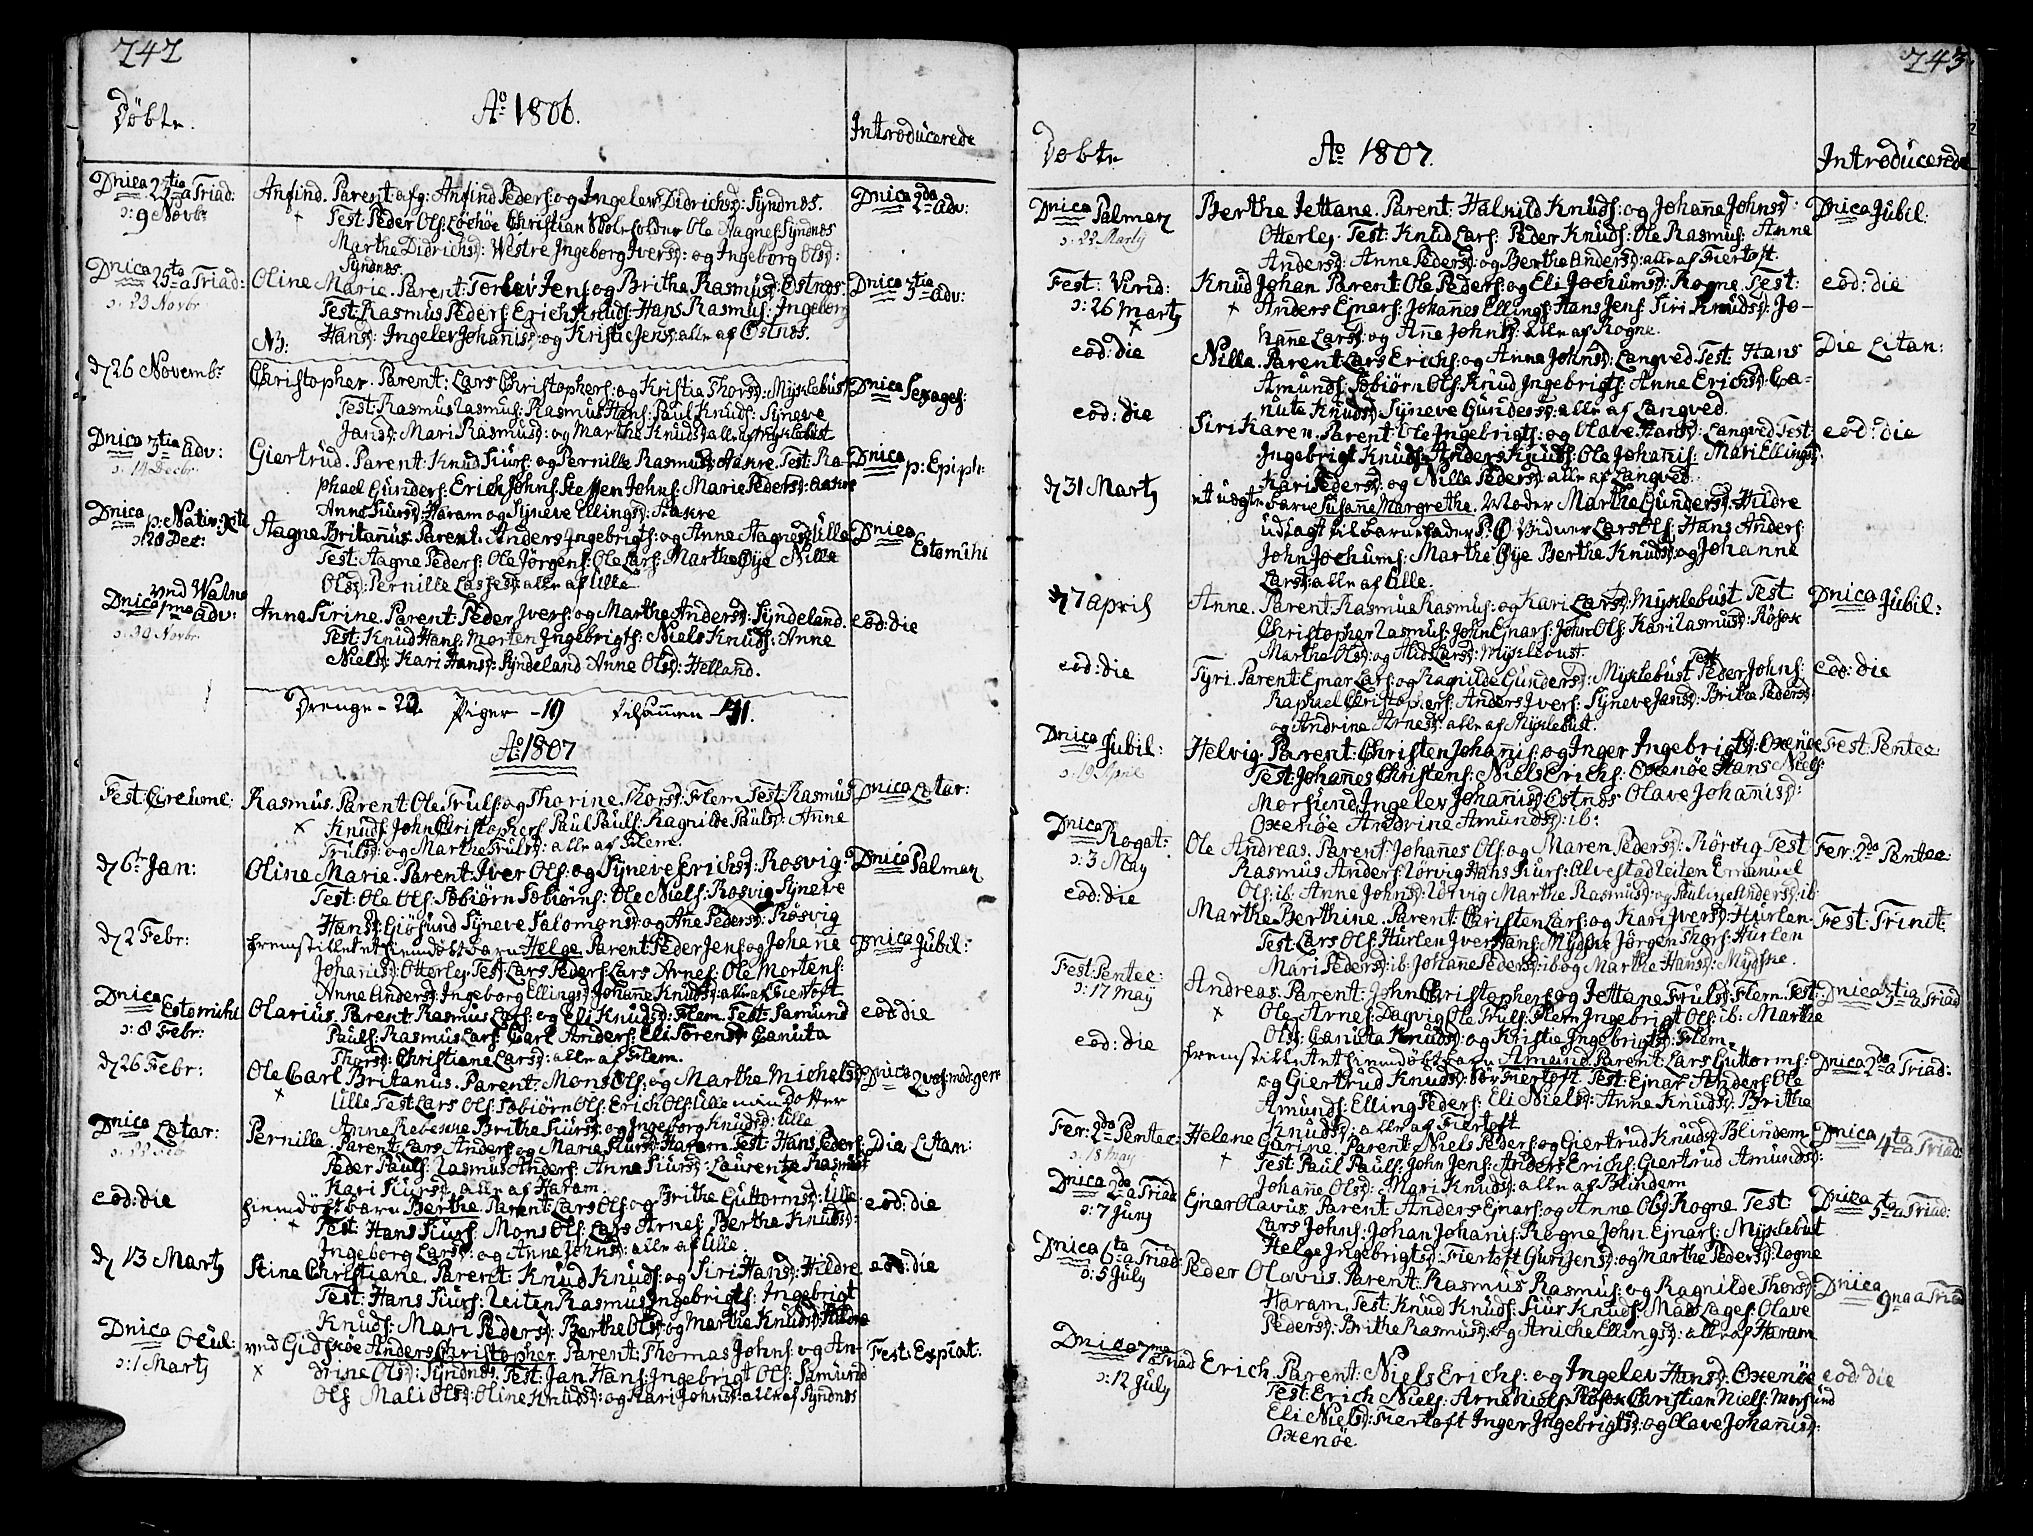 242
Døbte.
Ao 1806.
Introducerede
Dnica 23tia a Triad:
ɔ: 9 Novbr
Anfind. Parent afg: Anfind Peders: og Ingelev Didrichsd: Syndnes.
Test: Peder Ols: Christian Ole Hagnes: Syndnes
Marthe Didrichsd: Westre Ingeborg Iversd: og Ingeborg Olsd:
Syndnes.
Dnica 2da adv:
Dnica 25ta a Triad:
ɔ: 23 Novbr
Oline Marie. Parent: Torlev Jens: og Brithe Rasmusd: Østnes.
Test: Rasmus Peders: Erich Knuds: Hans Rasmus: Ingeborg
Hansd: Ingelev Johanisd: og Kristie Jensd: alle af Østnes.
Dnica 3tia adv:
NB:
d 26 Novembr
Christopher. Parent: Lars Christophers: og Kristie Thorsd: Myklebust
Test: Rasmus Rasmus: Rasmus Hans: Paul Knuds: Syneve
Jansd: Mari Rasmusd: og Marthe Knudsd: alle af Myklebust
Dnica Sexages:
Dnica 3tia adv:
ɔ: 14 Decbr
Giertrud. Parent: Knud Siurs: og Pernille Rasmusd: Aakre. Test: Ra-
phael Gunders: Erich Johns: Steffen Johns: Marie Pedersd: Aakre
Anne Siursd: Haram og Syneve Ellingsd: Aakre
Dnica p: Epiph:
Dnica p: Nativ: Xti
ɔ: 28 Dec:
Aagne Britanus. Parent: Anders Ingebrigts: og Anne Aagnesd: Ulle
Test: Aagne Peders: Ole Jørgens: Ole Lars: Marthe Øye Nille
Olsd: Pernille Lassesd: alle af Ulle
Dnica Estomihi
ved Walne
Dnica 1ma adv:
ɔ: 30 Novbr
Anne Sirine. Parent: Peder Ivers: og Marthe Andersd: Syndeland.
Test: Knud Hans: Morten Ingebrigts: Niels Knuds: Anne
Nielsd: Kari Hansd: Syndeland Anne Olsd: Helland.
eod: die
Drenge - 22 Piger - 19 tilsamen - 41.
Ao 1807
Fest: Circumc:
Rasmus. Parent Ole Truls: og Thorine Thorsd: Flem Test Rasmus
Knuds: John Christophers: Paul Pauls: Ragnilde Paulsd: Anne
Trulsd: og Marthe Trulsd: alle af Flem.
Dnica Lætar:
d 6te Jan:
Oline Marie. Parent: Iver Ols: og Syneve Erichsd: Rosvig.
Test: Ole Ols: Tobiørn Tobiørns: Ole Niels: Rosvig Syneve
Hansd: Giøsund Syneve Salomonsd: og Ane Pedersd: Røsvig
Dnica Palmar
d 2 Febr:
fremstillet et hiemdøbt barn Helge. Parent Peder Jens: og Johane
Johanisd: Otterlej Test: Lars Peders: Lars Arnes: Ole Mortens:
Anne Andersd: Ingeborg Ellingsd: Johanne Knudsd: alle af Fiertoft
Dnica Jubil:
Dnica Estomihi
ɔ: 8 Febr:
Olarius. Parent Rasmus Lars: og Eli Knudsd: Flem. Test: Samund
Pauls: Rasmus Lars: Carl Anders: Eli Sørensd: Canuta
Thorsd: Christiane Larsd: alle af Flem.
eod die
d 26 Febr:
Ole Carl Britanus. Parent: Mons Ols: og Marthe Michelsd:
Ulle. Test: Lars Ols: Tobiørn Ols: Erich Ols: Ulle
Anne Rebecke Brithe Siursd: og Ingeborg Knudsd: Ulle
Dnica Qvasimodogen:
Dnica Lætar:
Pernille. Parent: Lars Anders: og Marie Siursd: Haram. Test: Hans Peders:
Peder Pauls: Rasmus Anders: Anne Siursd: Laurentze Rasmusd:
Kari Siursd: alle af Haram.
Die Litan:
eod: die
hiemdöbt barn Berthe. Parent: Lars Ols: og Brithe Guttormsd: Ulle:
Test: Hans Siurs: Mons Ols: Lars Arnes: Berthe Knudsd:
Ingeborg Larsd: og Anne Johnsd: alle af Ulle.
eod: die
d 13 Marty
Stine Christiane. Parent: Knud Knuds: og Siri Hansd: Hildre
Test: Hans Siurs: Leiten Rasmus Ingebrigts: Ingebrigt
Knuds: Mari Pedersd: Berthe Olsd: og Marthe Knudsd: Hildre
eod: die
Dnica Ocul:
ɔ: 1 Marty
ved Gidskoe Anders Christopher. Parent: Thomas Johns: og An-
drine Olsd: Syndnes. Test: Jan Hans: Ingebrigt Ols: Samund
Ols Mali Olsd: Oline Knudsd: og Kari Johnsd: alle af Syndnes
Fest: Expiat:
243
Døbte
Ao 1807.
Introducerede
Dnica Palmar
ɔ: 22 Marty
Berthe Jettane. Parent: Halkild Knuds: og Johane Johnsd:
Otterlej. Test: Knud Lars: Peder Knuds: Ole Rasmus: Anne
Andersd: Anne Pedersd: og Berthe Andersd: alle af Fiertoft.
Dnica Jubil:
Fest: Virid:
ɔ: 26 Marty
Knud Johan. Parent: Ole Peders: og Eli Jochumsd: Rogne. Test:
Anders Ejnars: Johannes Ellings: Hans Jens: Siri Knudsd: Jo-
hanne Larsd: og Anne Johnsd: alle af Rogne.
eod: die
eod: die
Nille. Parent: Lars Erichs: og Anna Johnsd: Langved Test: Hans
Amunds: Tobiørn Ols: Knud Ingebrigts: Anne Erichsd: Ca-
nute Knudsd: Syneve Gundersd: alle af Langved.
Die Litan:
eod: die
Siri Karen. Parent: Ole Ingebrigts: og Olave Hansd: Langved Test
Ingebrigt Knuds: Anders Knuds: Ole Johanis: Mari Ellingsd:
Kari Pedersd: og Nille Pedersd: alle af Langved.
eod: die
d 31 Marty
et uægte barn Susane Margrethe. Moder Marthe Gundersd: Hildre
udlagt til barnefader Lars Ols: Hans Anders:
John Jochums: Marthe Øye Berthe Knudsd: og Johanne
Larsd: alle af Ulle.
d 7 April
Anne. Parent: Rasmus Rasmus: og Kari Larsd: Myklebust. Test
Christopher Rasmus: John Ejnars: John Ols: Kari Rasmusd: Røsok
Marthe Olsd: og Larsd: Myklebust.
Dnica Jubil:
eod: die
Test
Tyri. Parent: Ejnar Lars: og Ragnilde Gundersd: Myklebust Peder Johns:
Raphael Christophers: Anders Ivers: Syneve Jansd: Brithe Pedersd:
og Andrine Arnesd: alle af Myklebust.
eod: die
Dnica Jubil:
ɔ: 19 April
Helvig. Parent: Christen Johanis: og Inger Ingebrigtsd: Oxenøe
Test: Johannes Christens: Niels Erichs: Oxenöe Hans Niels:
Morsund Ingelev Johanisd: Østnes Olave Johanisd:
Oxenöe Andrine Amundsd: ib:
Fest: Pentec:
Dnica Rogat:
ɔ: 3 May
Ole Andreas. Parent: Johannes Ols: og Maren Pedersd: Rörvig Test
Rasmus Anders: Rörvig Hans Siurs: Alvestad Leiten Emanuel
Ols: ib: Anne Johnsd: Rörvig Marthe Rasmusd: og Pauline Andersd: ib:
Fer: 2da Pentec:
eod: die
Marthe Berthine. Parent: Christen Lars: og Kari Iversd: Hurlen
Test: Lars Ols: Hurlen Iver Hans: Mydske Jörgen Thors: Hurlen
Mari Pedersd: ib: Johanne Pedersd: ib: og Marthe Hansd: Mydske.
Fest: Trinit
Fest: Pentec:
ɔ: 17 May
Andreas. Parent: John Christophers: og Jettane Trulsd: Flem. Test:
Ole Arnes: Dagvig Ole Truls: Flem Ingebrigt Ols: ib: Marthe
Olsd: Canuta Knudsd: og Kristie Ingebrigtsd: Flem.
Dnica 3tia a Triad
eod: die
fremstillet et hiemdöbt barn Amund. Parent: Lars Guttorms:
og Giertrud Knudsd: Fiertoft Test: Ejnar Anders: Ole
Amunds: Elling Peders: Eli Nielsd: Anne Knudsd: Brithe
Knudsd: alle af Fiertoft
Dnica 2da a Triad:
Fer: 2da Pentec:
ɔ: 18 May
Helene Carine. Parent: Niels Peders: og Giertrud Knudsd: Blindem
Test: Paul Pauls: John Jens: Anders Erichs: Giertrud Amundsd:
Johanne Olsd: Mari Knudsd: alle af Blindem
Dnica 4ta a Triad
Dnica 2da a Triad
ɔ: 7 Juny
Ejnar Olavus. Parent: Anders Ejnars: og Anne Olsd: Rogne Test
Lars Johns: Johan Johanis: Rogne John Ejnars: Myklebust
Helge Ingebrigtsd: Fiertoft Guri Jensd: og Marthe Pedersd: Rogne
Dnica 5ta a Triad:
Dnica 6ta a Triad:
ɔ: 5 July
Peder Olavus. Parent: Rasmus Rasmus: og Ragnilde Thorsd:
Haram. Test: Knud Knuds: Siur Knuds: Mads Lages: Olave
Pedersd: Brithe Rasmusd: og Anichen Ellingsd: alle af Haram
Dnica 9na a Triad
Dnica 7ma a Triad
ɔ: 12 July
Erich. Parent: Niels Erichs: og Ingelev Hansd: Oxenöe
Test: Erich Niels: Arne Niels: Røsok Christian Niels: Morsund
Eli Nielsd: Fiertoft Inger Ingebrigtsd: og Olave Johanisd:
Oxenöe
eod: die